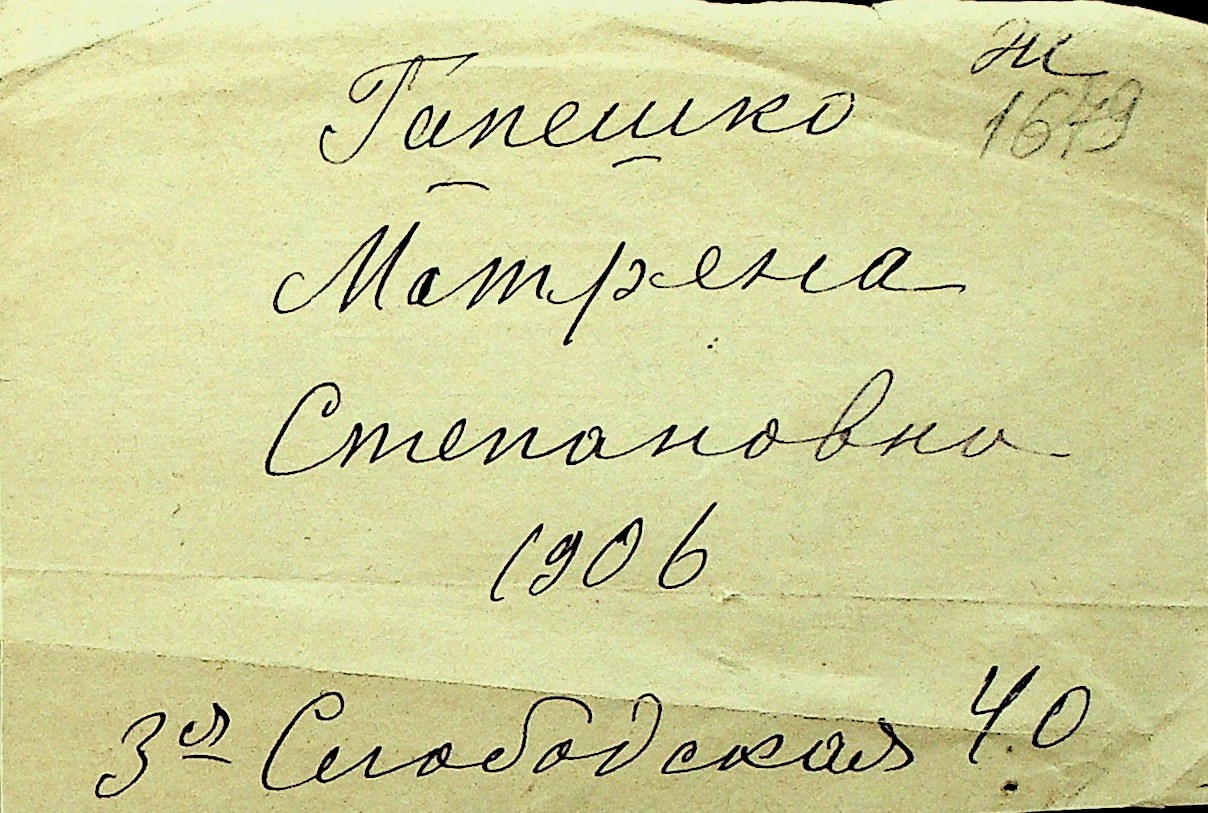 ж
1679
Гапешко
Матрена
Степановна
1906
3я Слободская 40